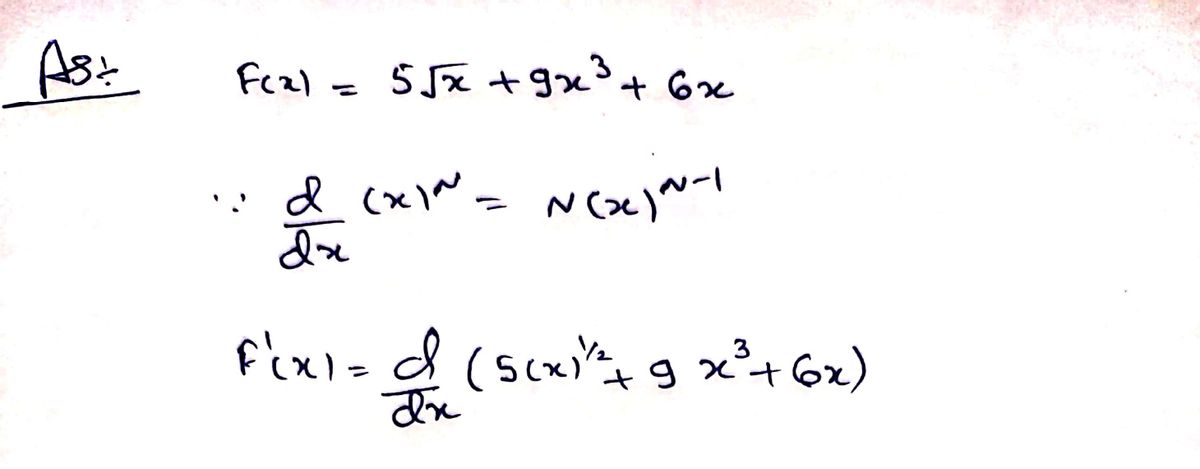 As:- F(x) = 5√x + 9x³ + 6x
∵ d/dx (x)ᴺ = N(x)ᴺ⁻¹
F'(x) = d/dx (5(x)^1/2 + 9 x³ + 6x)